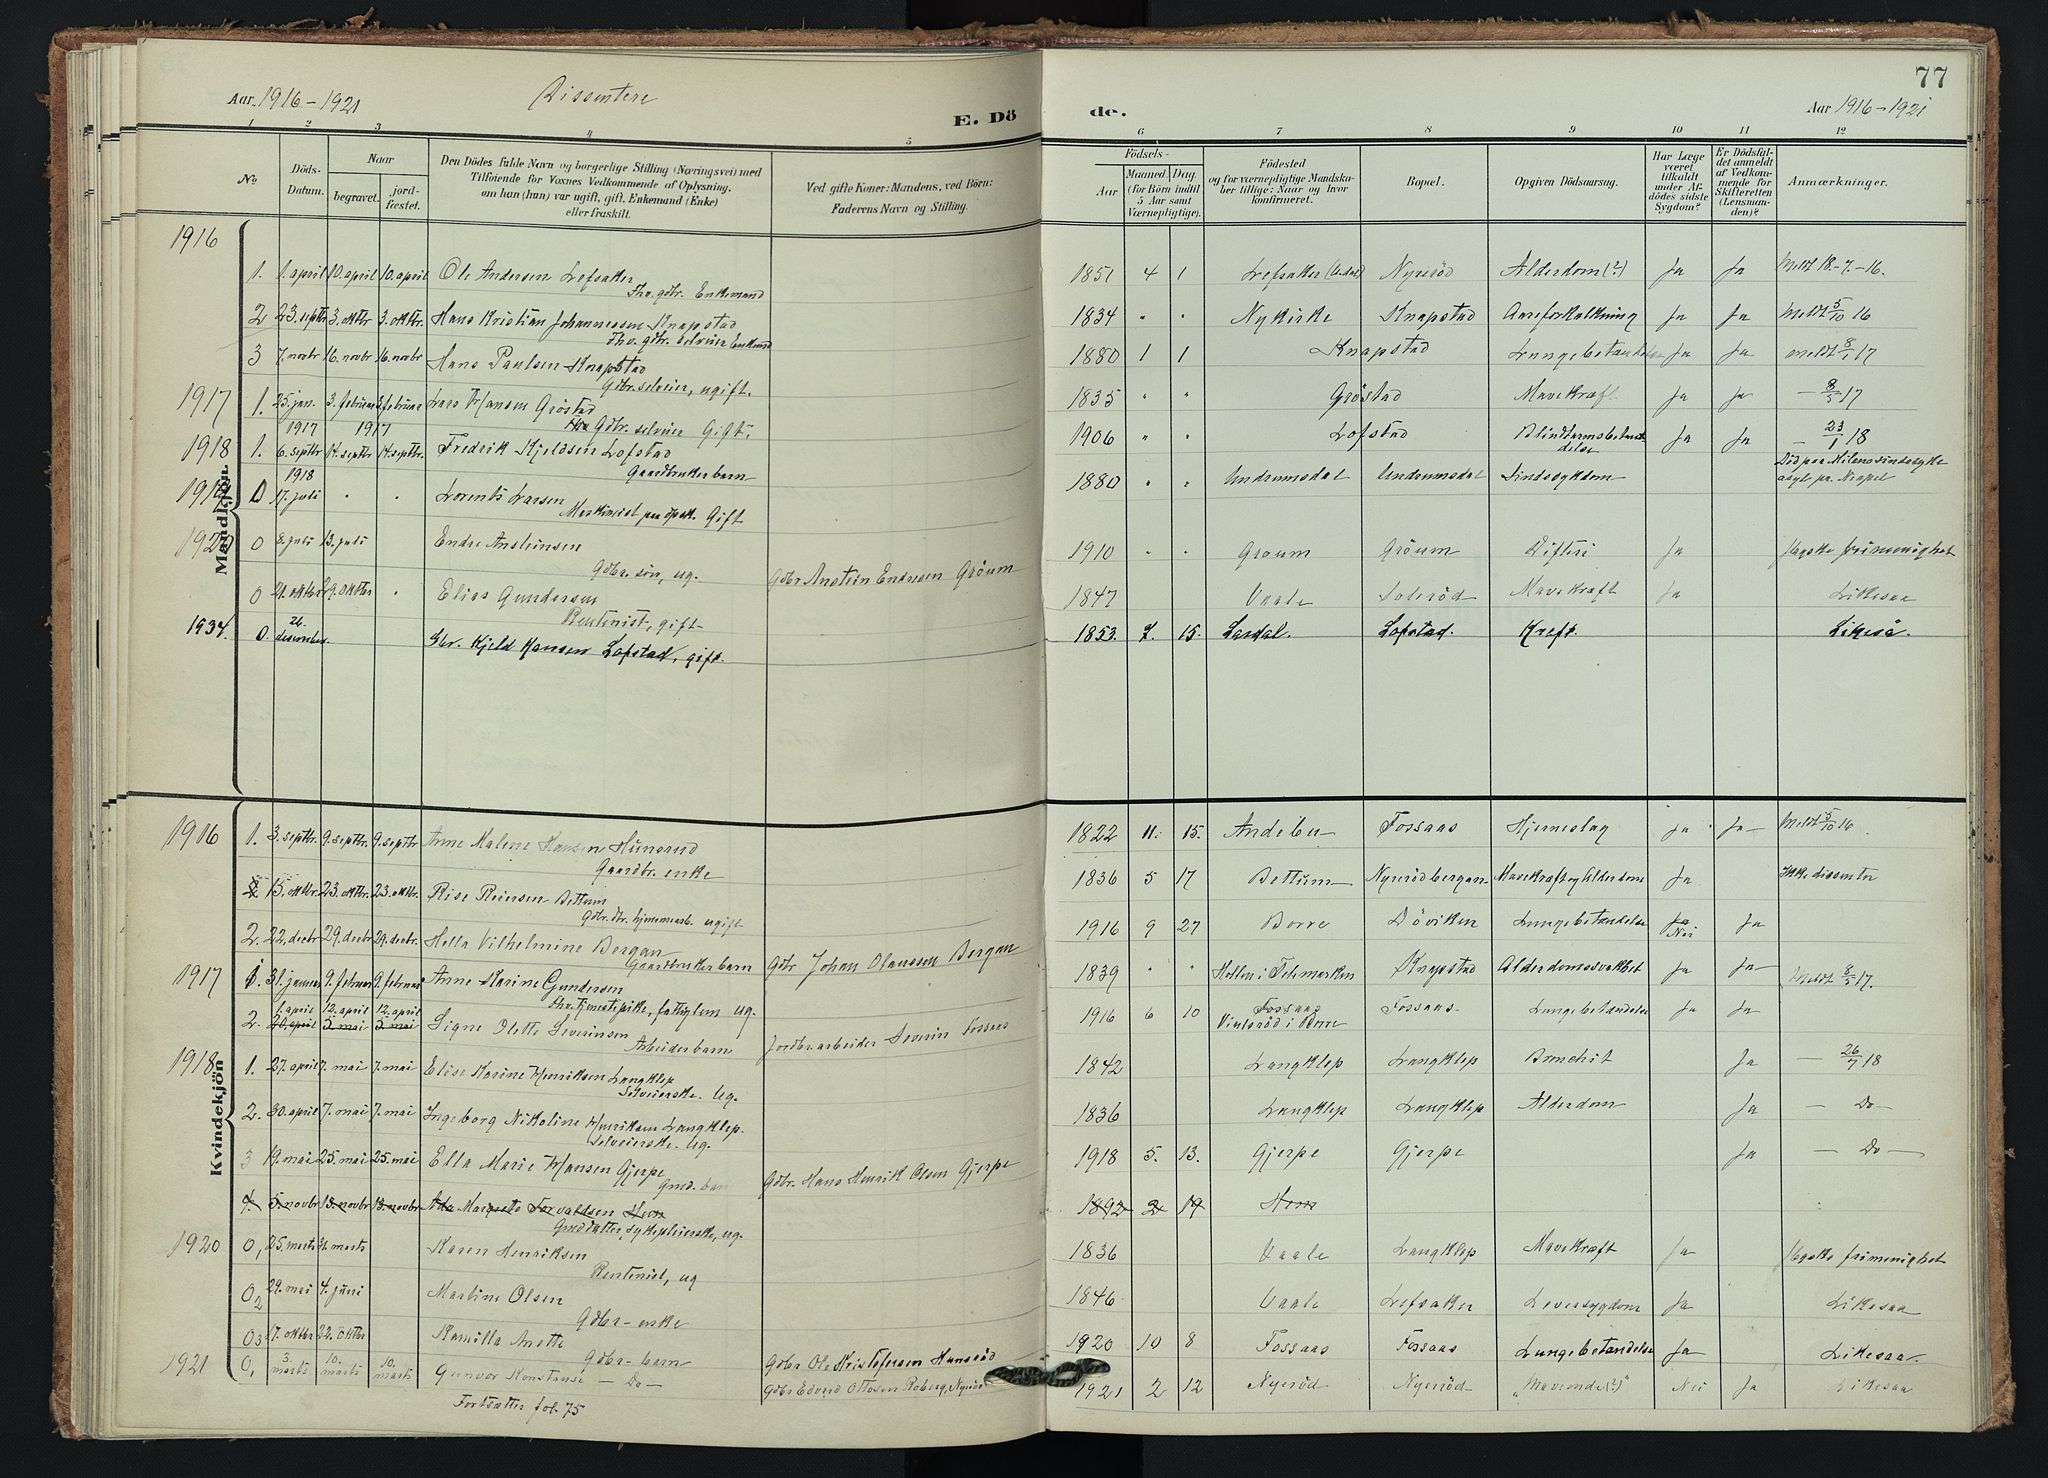 77
Aar 1916-1921
Dissentere
E. Dö
de.
Aar 1916-1921
1 2 3 4 5 6 7 8 9 10 11 12
No
Döds-Datum.
Naar
begravet.
jord-fæstet.
Den Dödes fulde Navn og borgerlige Stilling (Næringsvei) med
Tilföiende for Voxnes Vedkommende af Oplysning,
om han (hun) var ugift, gift, Enkemand (Enke)
eller fraskilt.
Ved gifte Koner: Mandens, ved Börn:
Faderens Navn og Stilling.
Födsels-
Aar
Maaned. Dag.
(for Börn indtil
5 Aar samt
Værnepligtige).
Födested
og for værnepligtige Mandska-
ber tillige: Naar og hvor
konfirmeret.
Bopæl.
Opgiven Dödsaarsag.
Har Læge
været
tilkaldt
under Af-
dödes sidste
Sygdom?
Er Dödsfal-
det anmeldt
af Vedkom-
mende for
Skifteretten
(Lensman-
den)?
Anmærkninger.
Mandkjön.
1916
1. 1. april 10. april 10. april Ole Andersen Lefsaker 1851 4 1 Lefsaker Nyeröd Alderdom (?) Ja Ja Meldt 18-7-16.
Fhv. gdbr. Enkemand
2 23. septbr 3. oktbr 3. oktbr. Hans Kristian Johannessen Knapstad 1834 " " Nykirke Knapstad Aareforkalkning Ja Ja Meldt 5/10 16
Fhv. gdbr. selveier Enkemd
3 7. novbr 16. novbr 16. novbr Hans Paulsen Knapstad 1880 1 1 Knapstad Lungebetændelse Ja Ja meldt 8/1 17
Gdbr. selveier, ugift.
1917 1. 25. jan. 3. februar 3 februar Lars Hansen Gröstad 1835 " " Gröstad Mavekræft Ja Ja — 8/5 17
Gdbr. selveier Gift.
1918 1. 6. septbr 1917 14. septbr 1917 14. septbr. Fredrik Kjeldsen Lofstad 1906 " " Lofstad Blindtarmsbetændelse Ja Ja — 23/1 18
Gaardbruker barn
0 17. juli 1918 " " Lorents Larsen 1880 " " Undrumsdal Undrumsdal Sindssygdom
Maskinist Gift
0 8. juli 13. juli Endre Ansteinsen 1910 " " Gröum Gröum Difteri Ja
Gdbr. sön, ug. Gdbr Anstein Endresen Gröum
0 21. oktber 29. oktber " Elias Gundersen 1847 Vaale Soleröd Mavekræft Ja Likesaa
Rentenist, gift
1934. 0. 26. desember. Gbr. Kjeld Hansen Lofstad, gift. 1853. 7. 15. Lardal. Lofstad. Kreft. Likeså.
Kvindekjön
1916 1. 3. septbr 9. septbr 9. septbr Anne Malene Hansen Hunsrud 1822 11. 15. Andebu Fossaas Hjerneslag Ja Ja Meldt 5/10 16
Gaardbr. enke
2 15. oktbr. 23. oktbr. 23. oktbr Rise Reiersen Bettum 1836 5 17 Bettum Nyerödbergan Mavekræft og Alderdom Ja Ikke dissenter
Gdbr. dtr. hjemmearb. ugift
2. 22. decbr 29. decbr 29. decbr. Hella Vilhelmine Bergan 1916 9 27 Borre Döviken Lungebetændelse Nei Ja
Gaardbruker barn Gdbr Johan Olaussen Bergan
1917 1. 31. januar 9. februar 9. februar Anne Marine Gundersen 1839 " " Hollen i Telemarken Knapstad Alderdomssvakhet Ja Ja Meldt 8/5 17.
Fhv. tjenestepike, fattiglem ug.
1. april 12. april 12. april
2. 20. april 5. mai 5. mai Signe Olette Severinsen 1916 6 10 Fossaas Fossaas Lungebetændelse Ja Ja
Arbeiderbarn Jordbr. arbeider Severin Fossaas
1918 1. 27. april 7. mai 7. mai Elise Karine Henriksen Langklep 1842 Langklep Langklep Bronchit Ja — 26/7 18
Selveierske. Ug.
2. 30. april 7. mai 7. mai Ingeborg Nikoline Henriksen Langklep. 1836 Langklep Langklep Alderdom Ja — Do —
Selveierske. Ug.
3 19. mai 25. mai 25. mai Ella Marie Hansen Gjerpe 1918 5. 13. Gjerpe Gjerpe Ja — Do —
Gmd. barn Gdbr. Hans Henrik Olsen Gjerpe
4. 5. novbr 13. novbr 13. novbr Ada Margrete Torvaldsen Hem 1892 2 19 Hem
Gmd datter, sykepleierske, ug.
1920 0, 25. marts 31. marts Karen Henriksen 1836 Vaale Langklep Mavekræft Ja
Rentenist, ug
0 2 29. mai 4. juni Martine Olsen 1846 Vaale Lefsaker Leversygdom Ja Likesaa
Gdbr-enke
0 3 17. oktber 22. oktber Kamilla Anette 1920 10 8 Fossaas Fossaas Lungebetændelse Ja Likesaa.
Gdbr-barn Gdbr Ole Kristofersen Hunsröd
1921 0, 3. marts 10. marts 10. marts Gunvor Konstanse — Do — Gdbr Edvard Ottosen Roberg, Nyeröd 1921 2 12 Nyeröd Nyeröd "Maveonde (?)" Nei Ja Likesaa
Fortsættes fol. 75